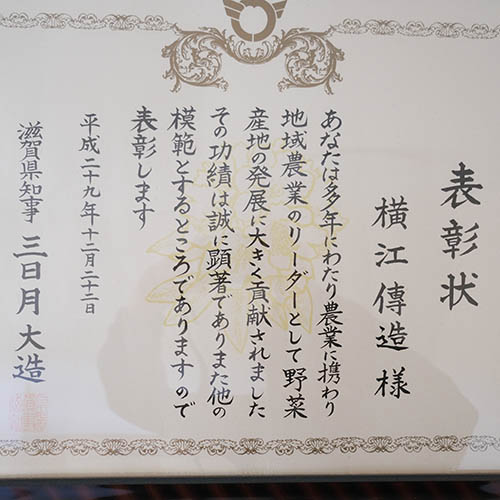 表彰状
横江傳造 様
あなたは多年にわたり農業に携わり
地域農業のリーダーとして野菜
産地の発展に大きく貢献されました
その功績は誠に顕著でありまた他の
模範とするところでありますので
表彰します
平成二十九年十二月二十二日
滋賀県知事 三日月大造